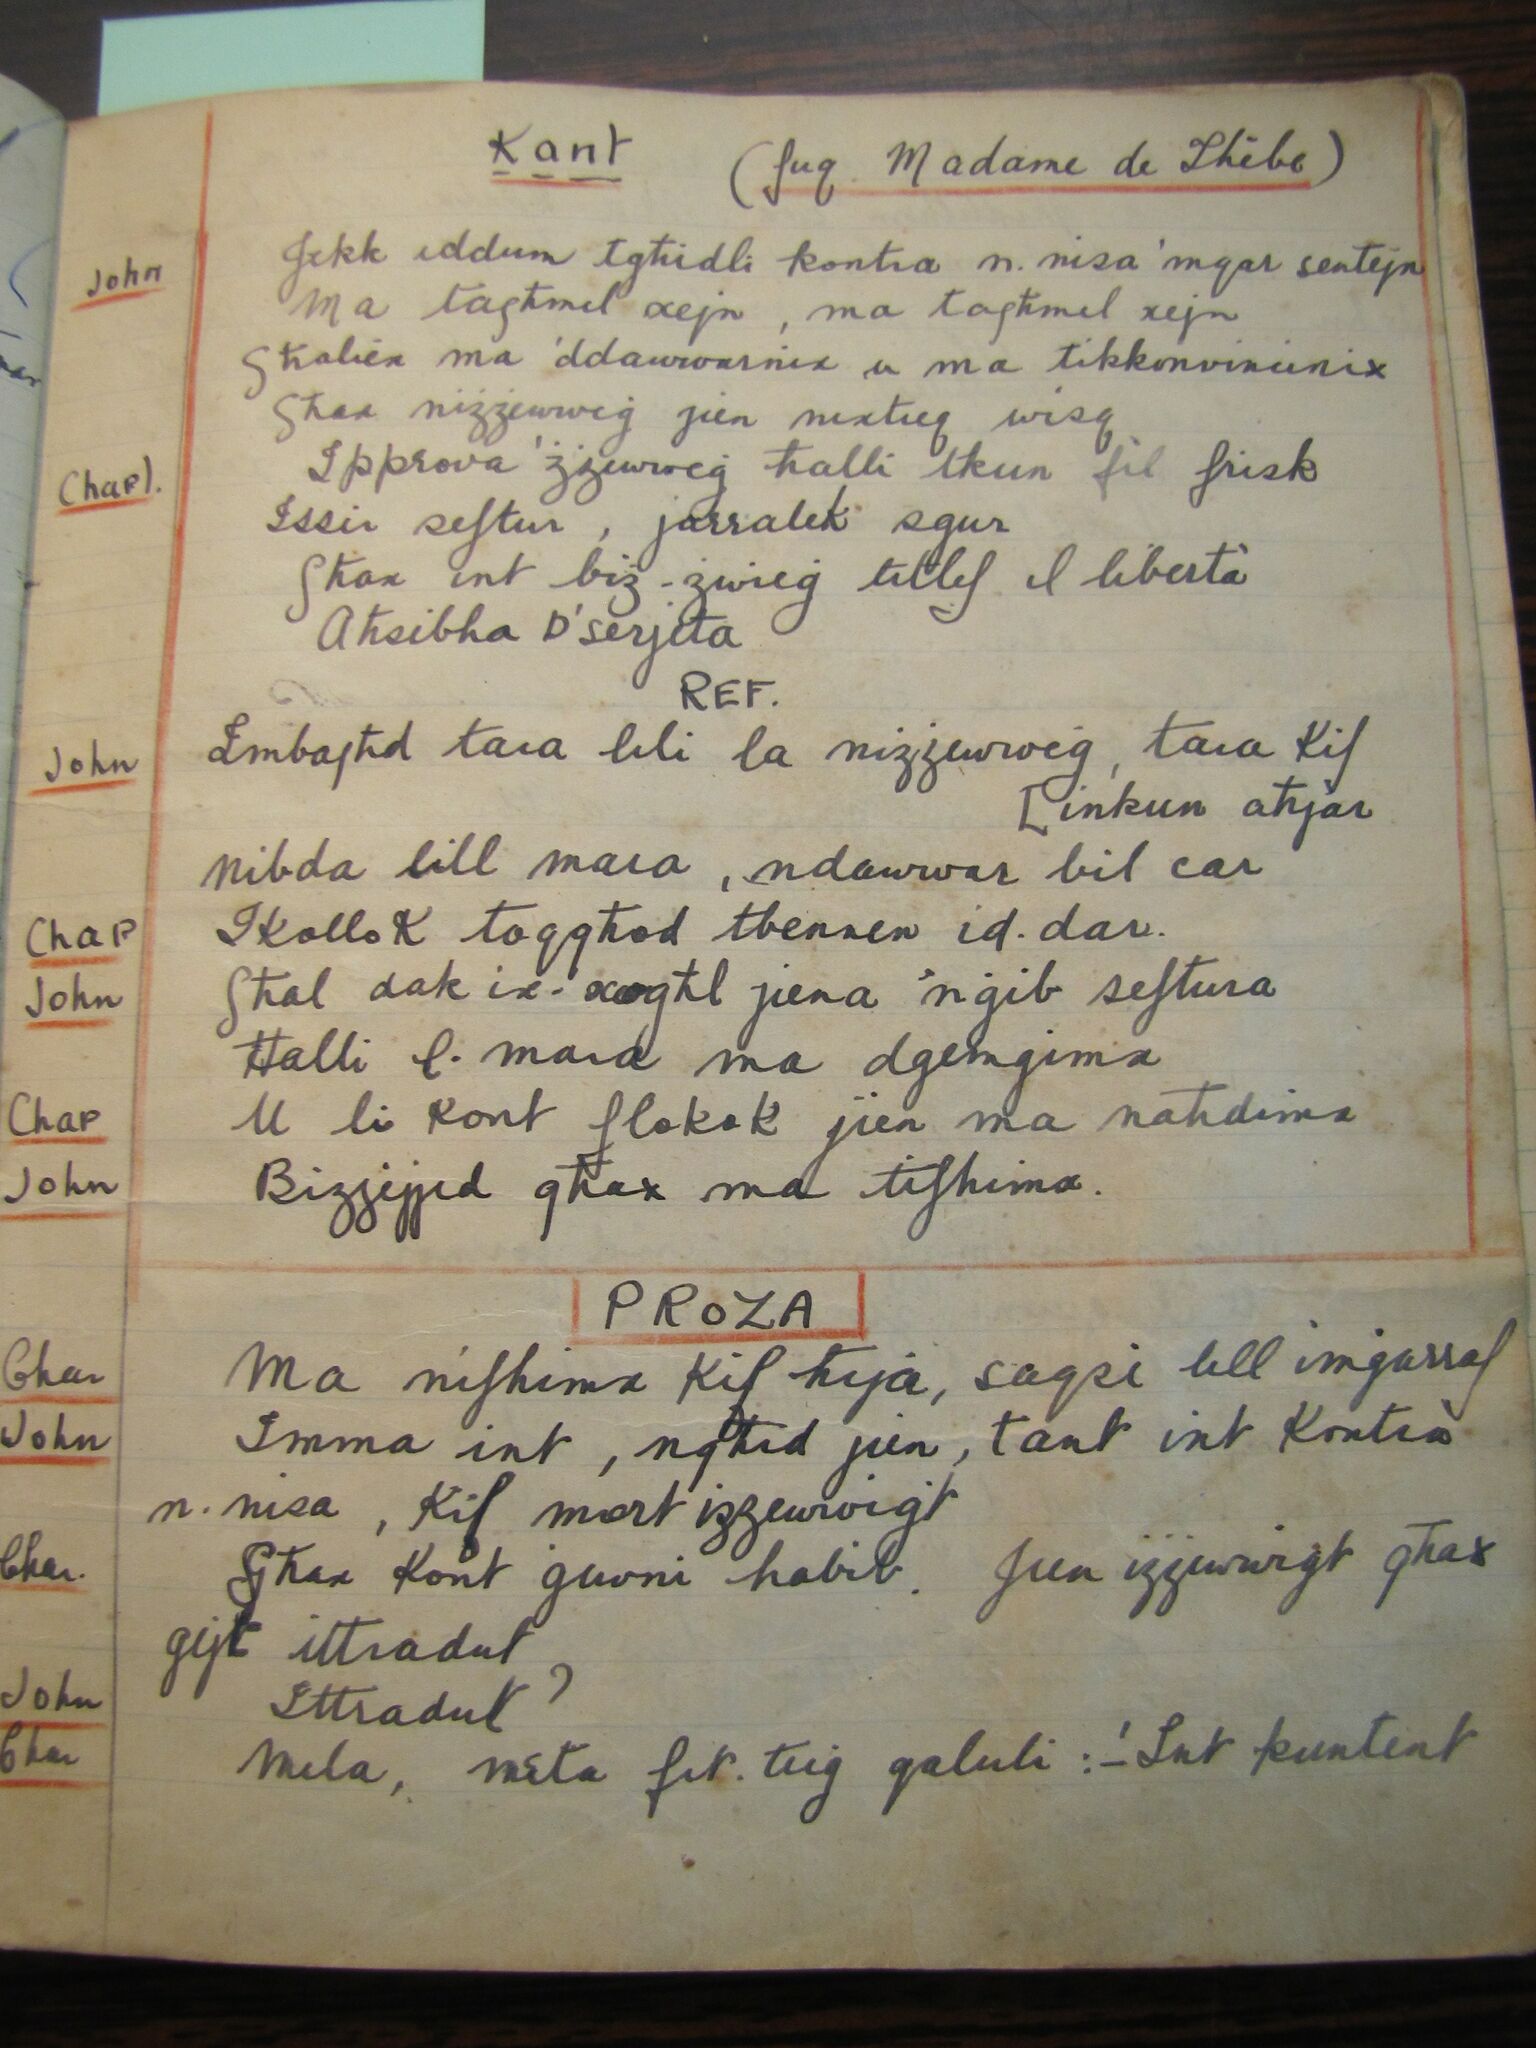 Kant (fuq Madame de Thébe)
John Jekk iddum tgħidli kontra n. nisa 'mqar sentejn
Ma tagħmel xejn, ma tagħmel xejn
Għaliex ma 'ddawwarnix u ma tikkonvincinix
Għax niżżewweġ jien nixtieq wisq
Chapl. Ipprova 'żżewweġ ħalli tkun fil frisk
Issir seftur, jassalek sgur
Għax int biż-żwieġ titlef il libertà
Aħsibha D'serjetà
REF.
John Imbagħd tara lili la niżżewweġ, tara Kif
[inkun aħjar
Nibda lill mara, ndawwar bil car
Chap IKolloK toqgħod tbennen id. dar.
John Għal dak ix-xogħl jiena 'nġib seftura
Ħalli l. mara ma dgemgimx
Chap U li Kont flokok jien ma naħdimx
John Biżżejjed għax ma tifhimx.
PROZA
Char Ma nifhimx Kif ħija, saqsi lill imġarraf
John Imma int, ngħid jien, tant int Kontra
n. nisa, Kif mort iżżewwiġt
Char. Għax Kont ġuvni ħabib. Jien iżżewwiġt għax
ġejt ittradut
John Ittradut?
Char Mela, meta fit. tieġ qaluli :- 'Int kuntent